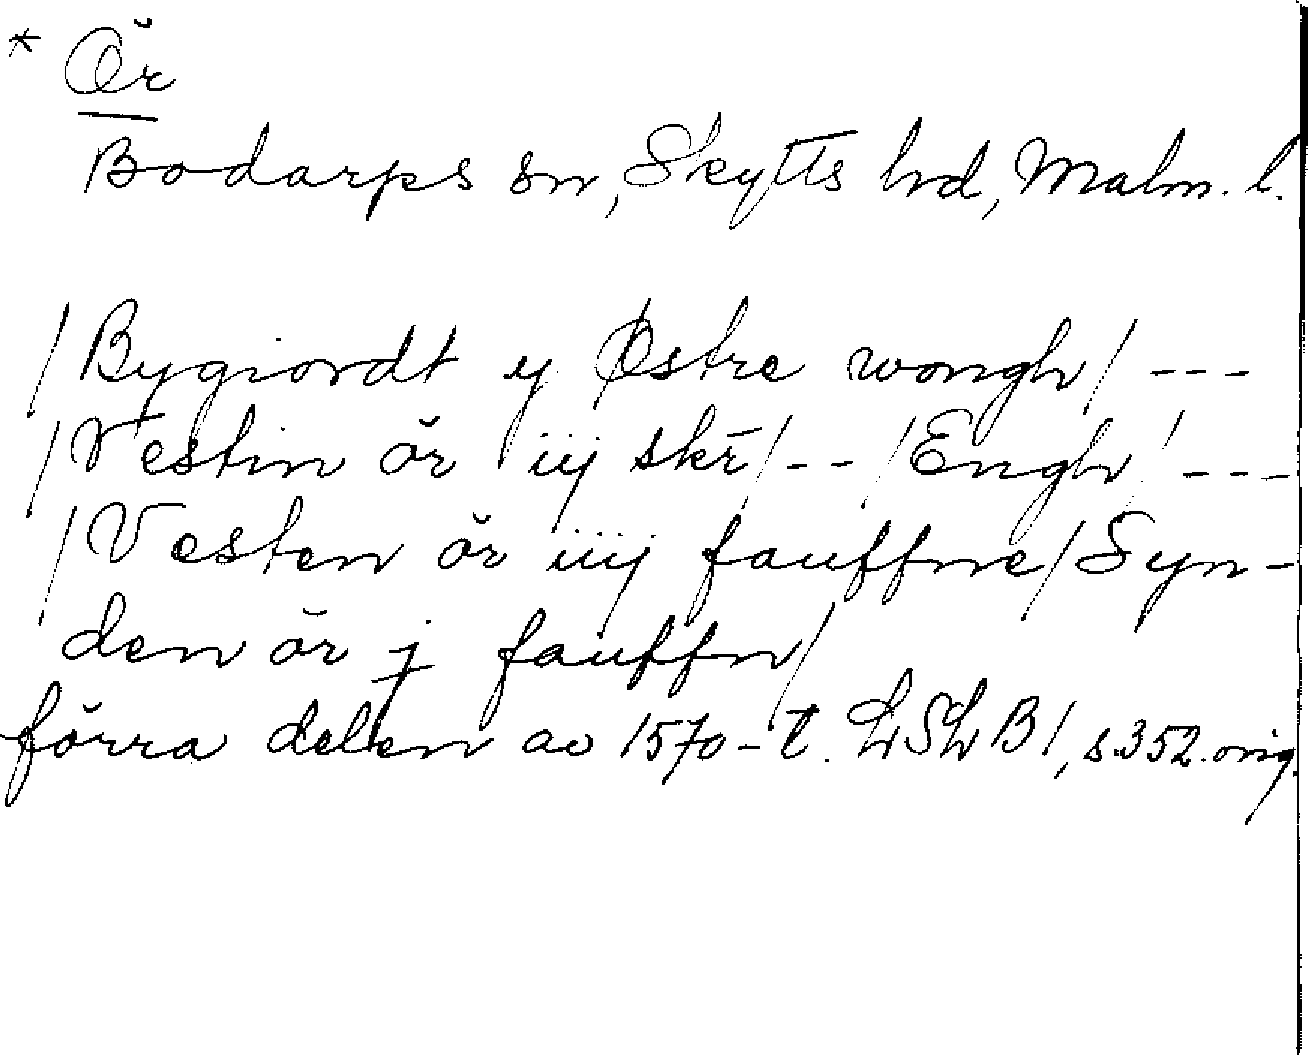 * Ör
Bodarps sn, Skytts hd, Malm. l.
/Bygiordt y Østre wongh/ ---
/Vestin ör iij skr̄/ -- /Engh/ ---
/Vesten ör iiij fauffne/Syn-
den ör j fauffn/
förra delen av 1570-t. LSLB1, s.352.orig.